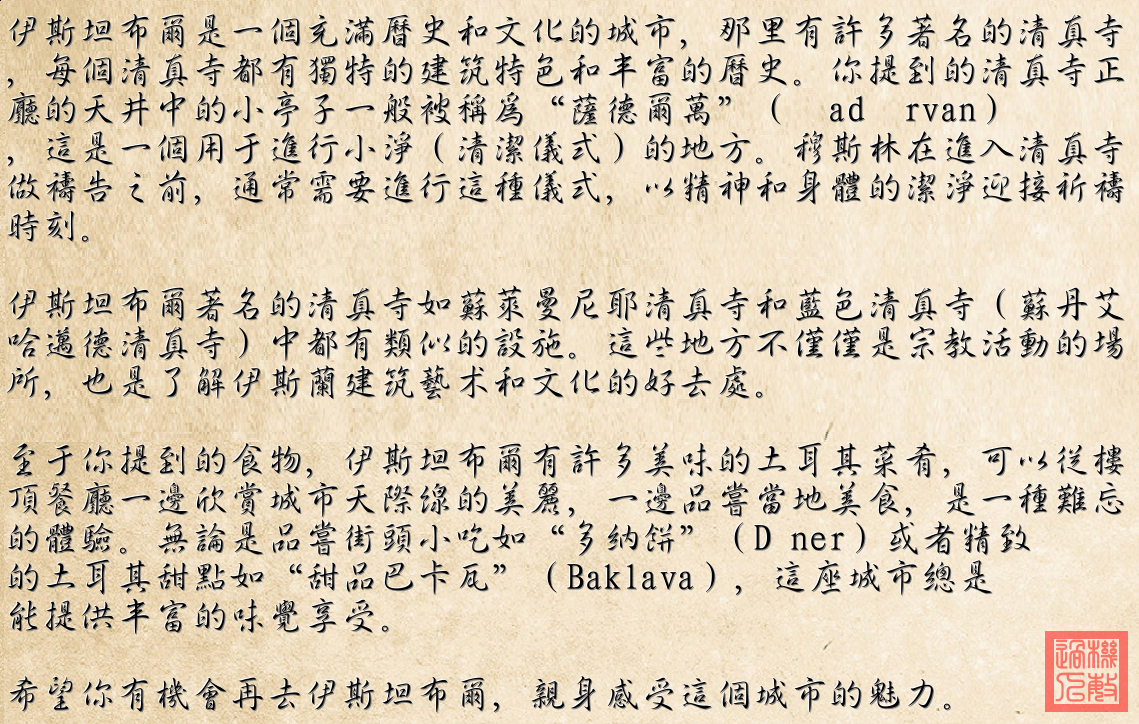 伊斯坦布爾是一個充滿曆史和文化的城市，那里有許多著名的清真寺
，每個清真寺都有獨特的建筑特色和丰富的曆史。你提到的清真寺正
廳的天井中的小亭子一般被稱爲“薩德爾萬”（ ad rvan）
，這是一個用于進行小淨（清潔儀式）的地方。穆斯林在進入清真寺
做禱告之前，通常需要進行這種儀式，以精神和身體的潔淨迎接祈禱
時刻。
伊斯坦布爾著名的清真寺如蘇萊曼尼耶清真寺和藍色清真寺（蘇丹艾
哈邁德清真寺）中都有類似的設施。這些地方不僅僅是宗教活動的場
所，也是了解伊斯蘭建筑藝术和文化的好去處。
至于你提到的食物，伊斯坦布爾有許多美味的土耳其菜肴，可以從樓
頂餐廳一邊欣賞城市天際線的美麗，一邊品嘗當地美食，是一種難忘
的體驗。無論是品嘗街頭小吃如“多納餅”（D ner）或者精致
的土耳其甜點如“甜品巴卡瓦”（Baklava），這座城市總是
能提供丰富的味覺享受。
希望你有機會再去伊斯坦布爾，親身感受這個城市的魅力。